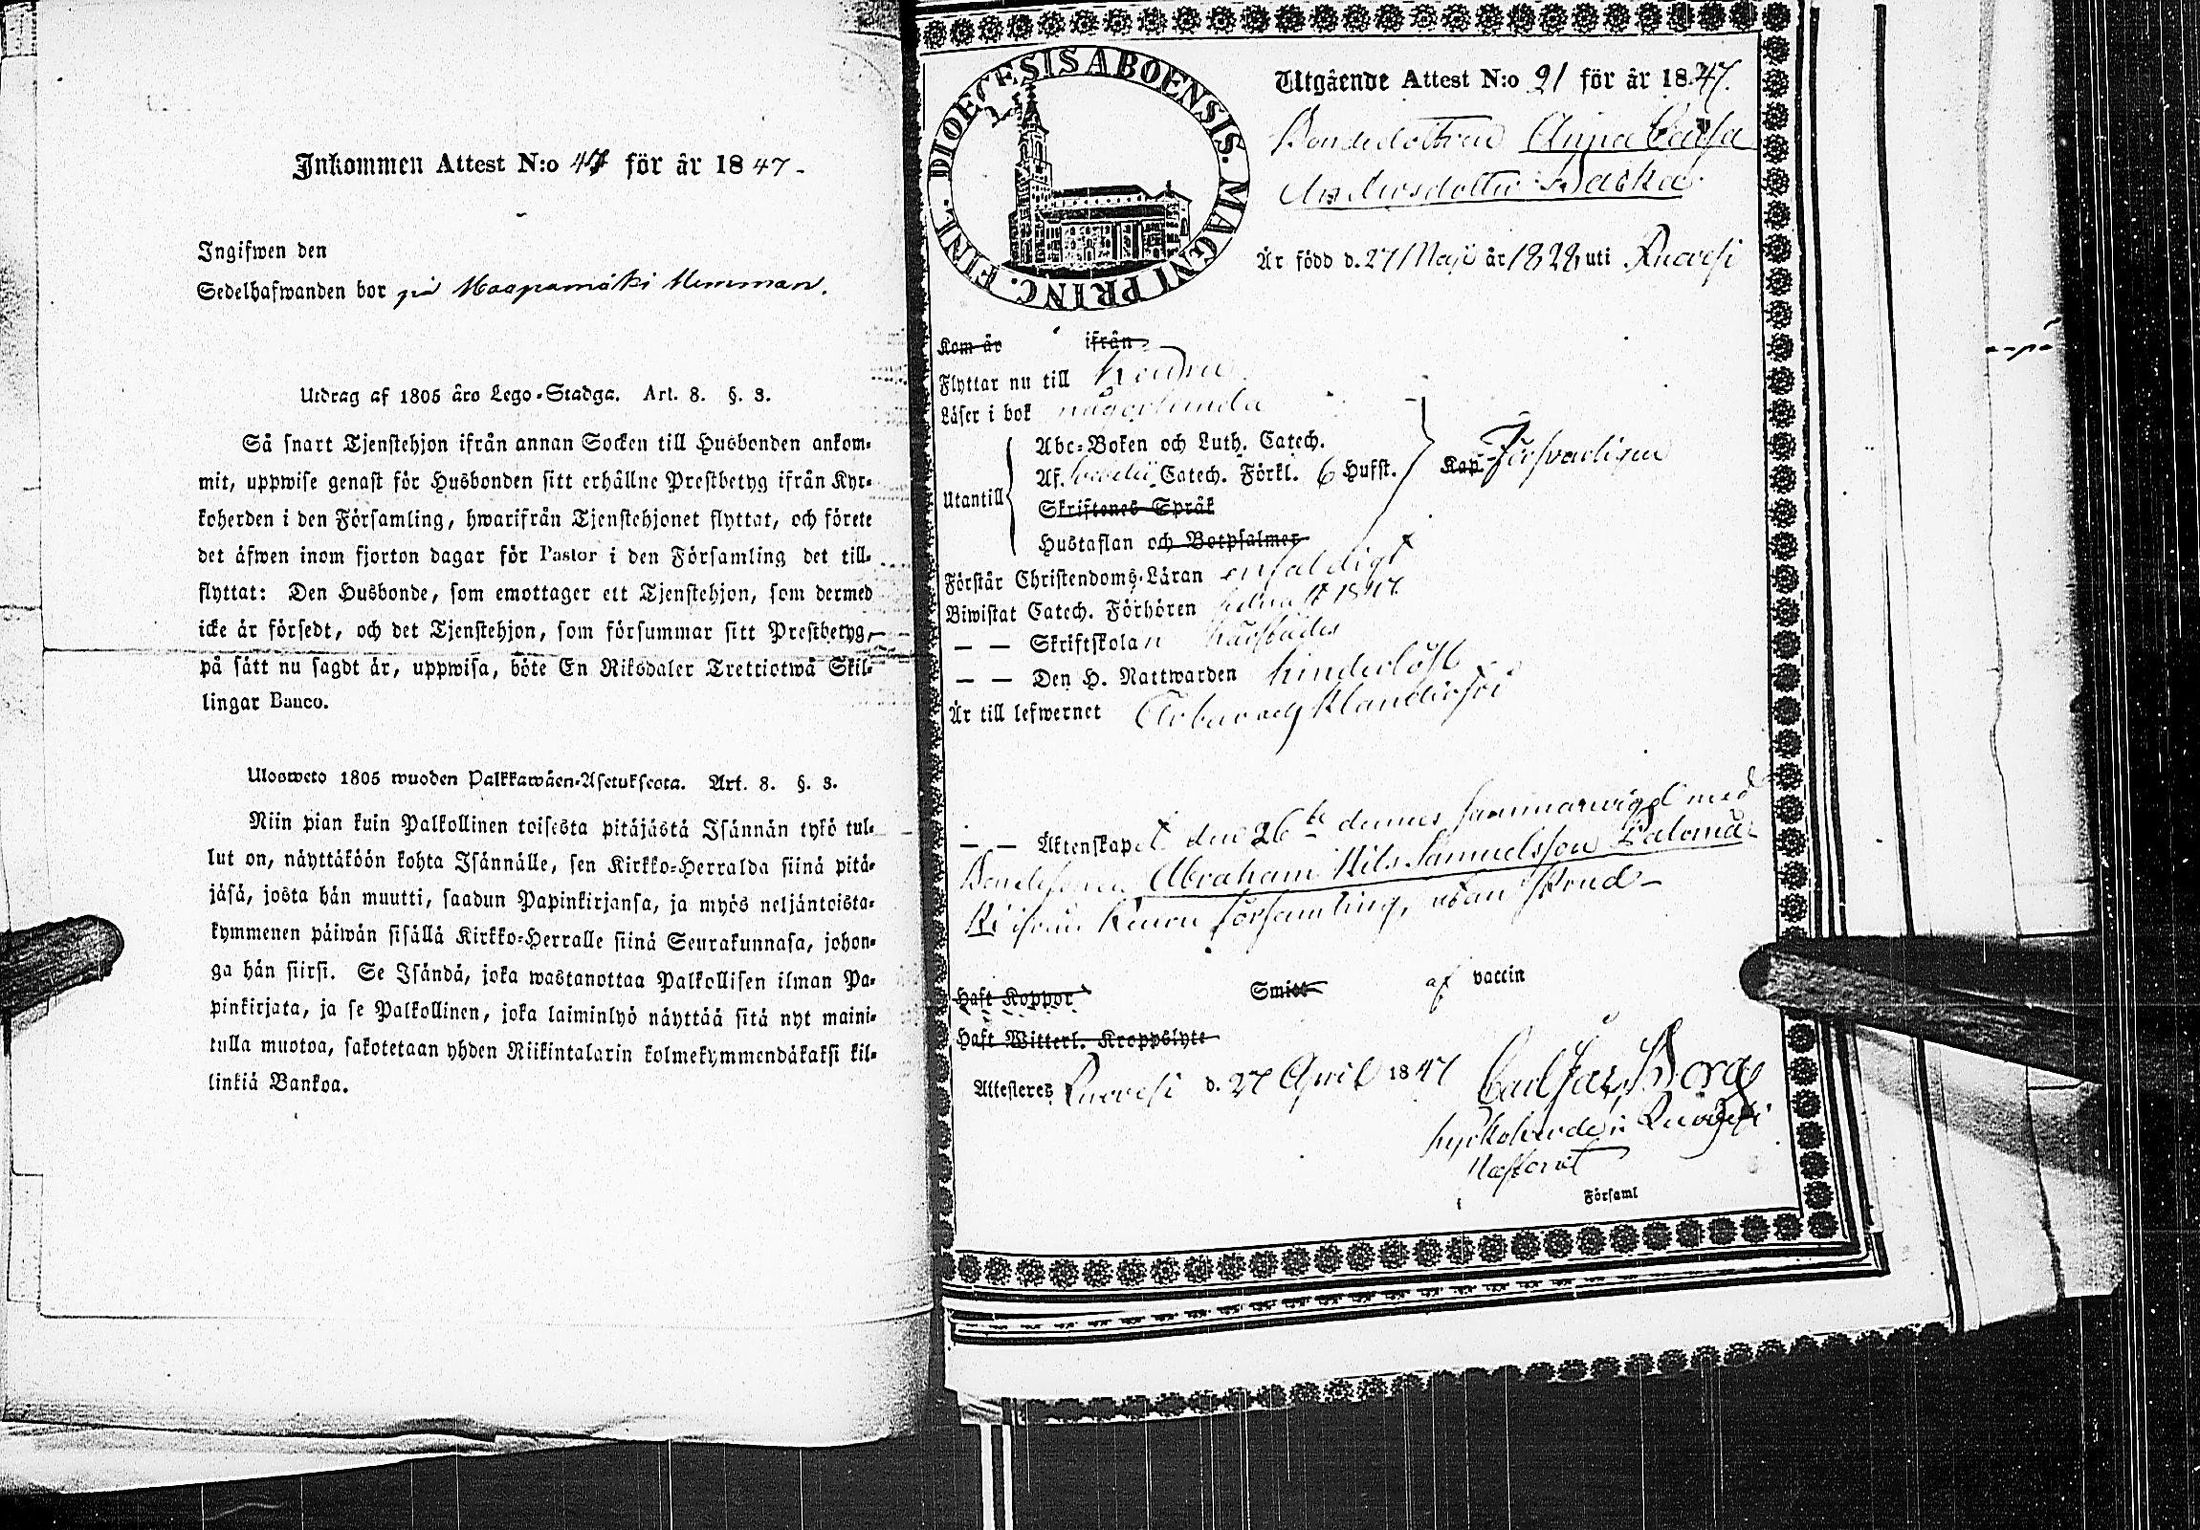 Inkommen Attest N:o 47 för år 1847.
Ingifwen den
Sedelhafwanden bor på Haapamäki Hemman.
Utdrag af 1805 åro Lego-Stadga. Art. 8. §. 3.
Så snart Tjenstehjon ifrån annan Socken till Husbonden ankom-
mit, uppwise genast för Husbonden sitt erhållne Prestbetyg ifrån Kyr-
koherden i den Församling, hwarifrån Tjenstehjonet flyttat, och förete
det äfwen inom fjorton dagar för Pastor i den Församling det till-
flyttat: Den Husbonde, som emottager ett Tjenstehjon, som dermed
icke är försedt, och det Tjenstehjon, som försummar sitt Prestbetyg,
på sätt nu sagdt är, uppwisa, böte En Riksdaler Trettiotwå Skil-
lingar Banco.
Ulosweto 1805 wuoden Palkkawäen-Asetuksesta. Art. 8. §. 3.
Niin pian kuin Palkollinen toisesta pitäjästä Isännän tykö tul-
lut on, näyttäköön kohta Isännälle, sen Kirkko-Herralda siinä pitä-
jäsä, josta hän muutti, saadun Papinkirjansa, ja myös neljäntoista-
kymmenen päiwän sisällä Kirkko-Herralle siinä Seurakunnasa, johon-
ga hän siirsi. Se Isändä, joka wastanottaa Palkollisen ilman Pa-
pinkirjata, ja se Palkollinen, joka laiminlyö näyttää sitä nyt maini-
tulla muotoa, sakotetaan yhden Riikintalarin kolmekymmendäkaksi kil-
linkiä Bankoa.
DIOECESIS ABOENSIS. MAGNI PRINC. FINL.
Utgående Attest N:o 91 för år 1847.
Bondedottren Anna Caisa
Andersdotter
Är född d. 27 Maji år 1828 uti Ruovesi
Kom år ifrån
Flyttar nu till Keuru
Läser i bok någorlunda
Abc-Boken och Luth. Catech.
Af Catech. Förkl. 6 Hufst.
Kap. Försvarligen
Utantill
Skriftenes Språk
Hustaflan och Botpsalmer
Förstår Christendoms-Läran enfaldigt
Biwistat Catech. Förhören sednast 1847
— — Skriftskolan härstädes
— — Den H. Nattwarden hinderlöst
Är till lefwernet Ärbar och klanderfri
— — Äktenskapet den 26te dennes sammanvigd med
Bondesonen Abraham Nils Samuelsson Palomä-
ki ifrån Keuru församling, utan frud-
Haft Koppor Smitt af vaccin
Haft Witterl. Kroppslyte
Attesteres Ruovesi d. 27 April 1847
Carl Jac. Borg
kyrkoherde i Ruovesi
Pastorat
Församl